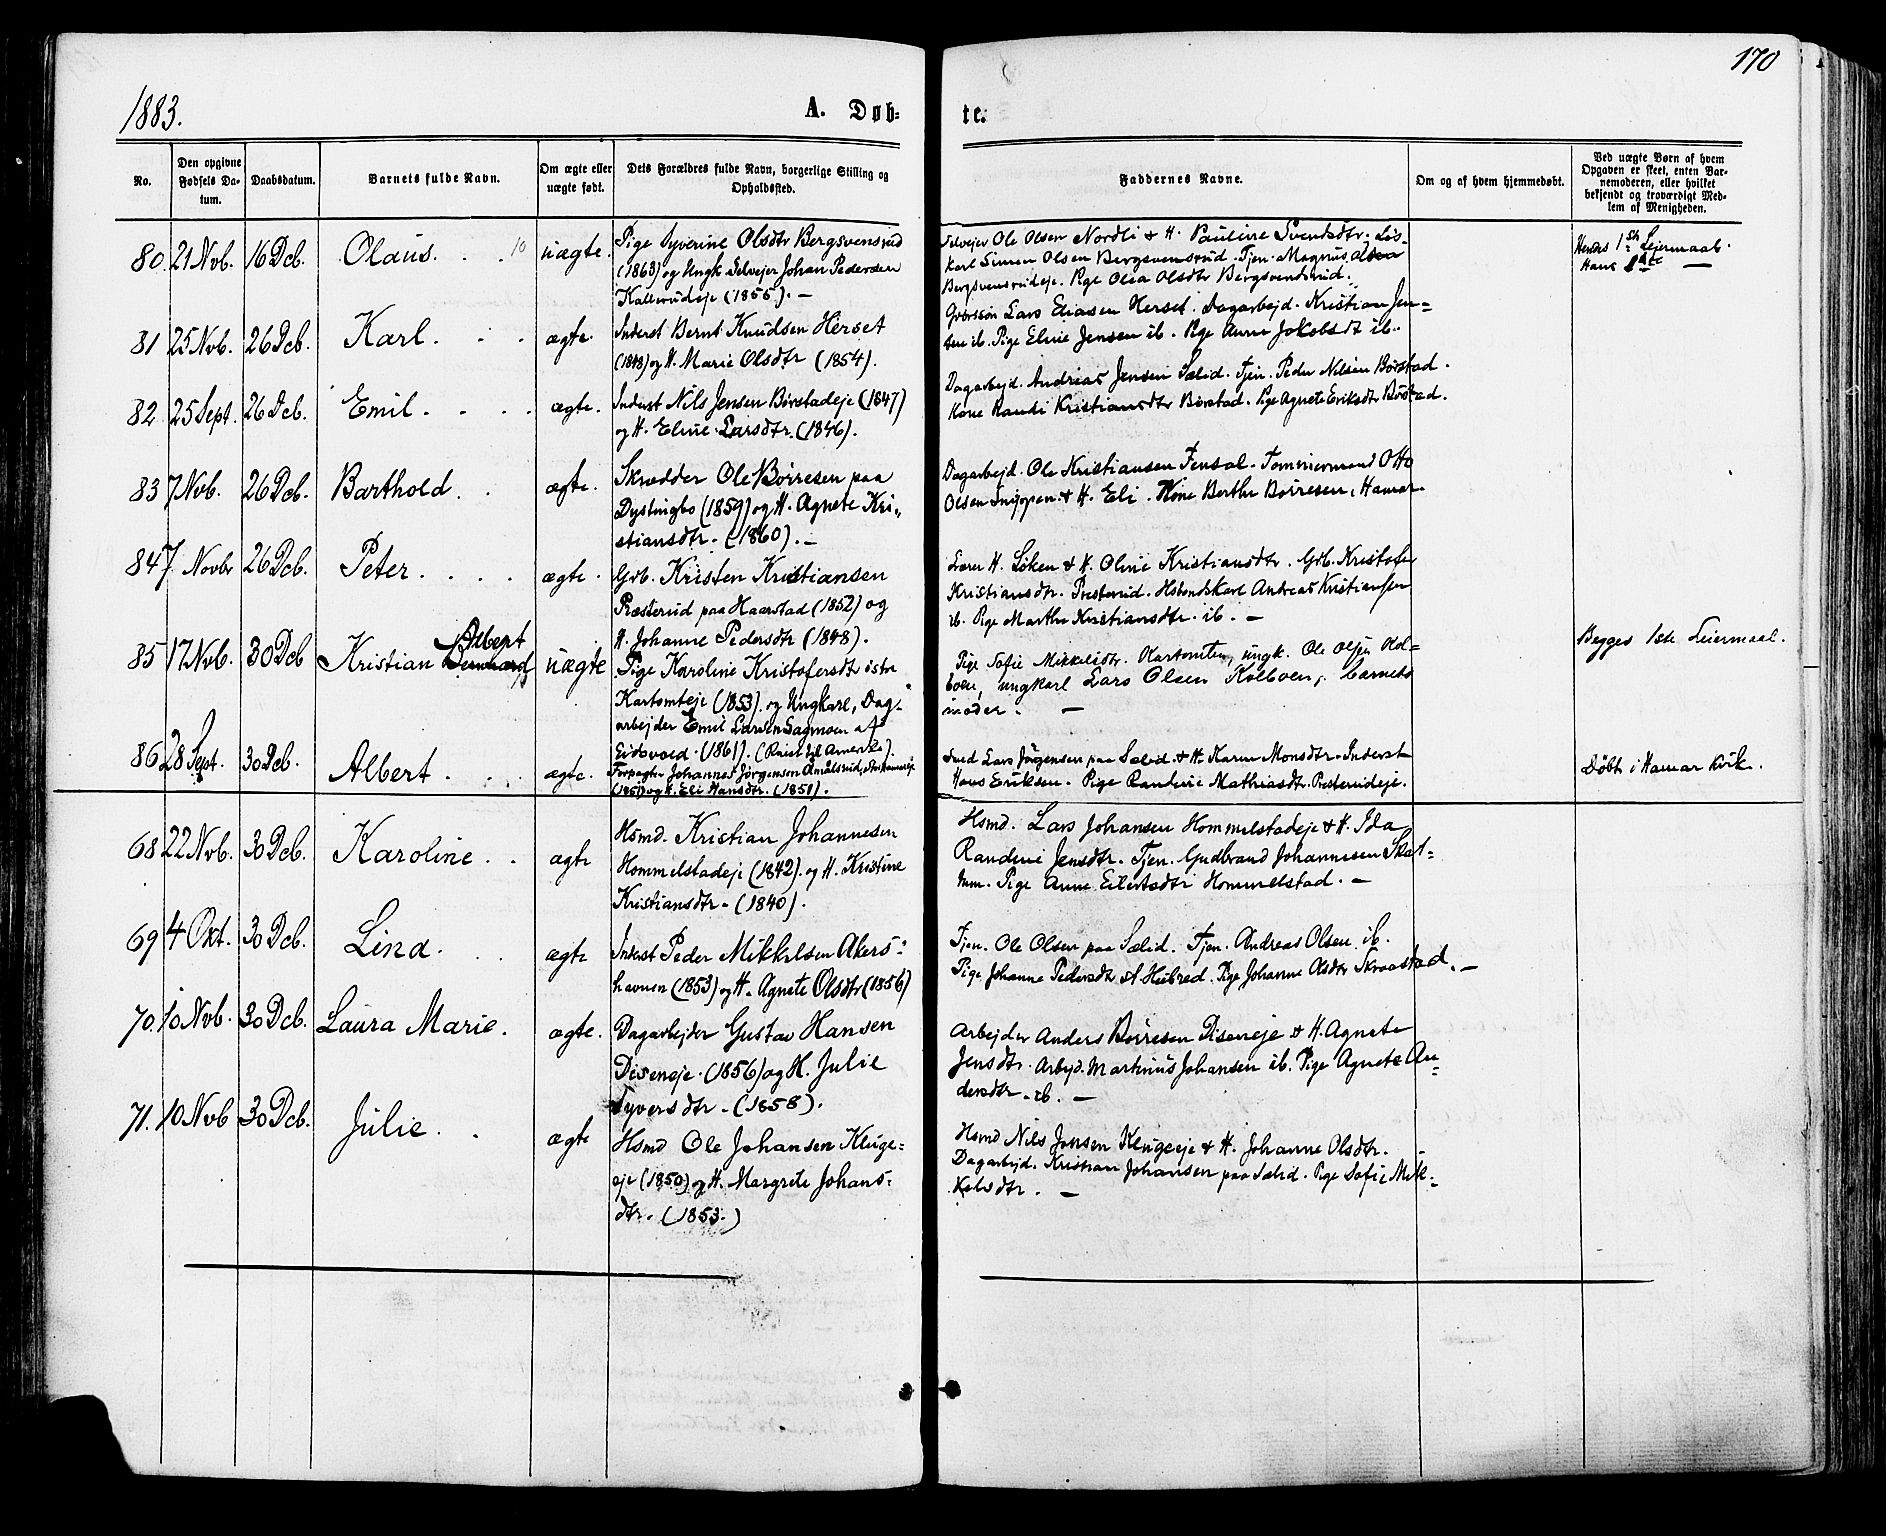 170
1883.
A. Døb- te.
No.
Den opgivne Fødsels Da-
tum.
Daabsdatum.
Barnets fulde Navn.
Om ægte eller
uægte født.
Dets Forældres fulde Navn, borgerlige Stilling og
Opholdssted.
Faddernes Navne.
Om og af hvem hjemmedøbt.
Ved uægte Børn af hvem
Opgaven er skeet, enten Bar-
nemoderen, eller hvilket
bekjendt og troværdigt Med-
lem af Menigheden.
80. 21 Nvb. 16 Dcb. Olaus. 10 uægte.
Pige Syverine Olsdtr Bergsvensrud
(1863) og Ungk. Selvejer Johan Pedersen
Kallerudeje (1855). —
Selvejer Ole Olsen Nordli & H. Pauline Svendsdtr. Løs-
karl Simen Olsen Bergsvensrud. Tjen. Magnus Olsen
Bergsvensrudeje. Pige Olea Olsdtr Bergsvendsrud.
Hendes 1ste Leiermaal.
Hans —
81 25 Nvb. 26 Dcb. Karl. ægte.
Inderst Bernt Knudsen Herset
(1848) og H. Marie Olsdtr (1854).
Grbrssøn Lars Eliasen Herset. Dagarbejd. Kristian Jen-
sen ib. Pige Eline Jensen ib. Pige Anne Jakobsdt ib.
82 25 Sept. 26 Dcb. Emil. ægte.
Inderst Nils Jensen Børstadeje (1847)
og H. Eline Larsdtr. (1846).
Dagarbejd. Andreas Jensen Sælid. Tjen. Peder Nilsen Børstad.
Kone Randi Kristiansdtr Børstad. Pige Agnete Eriksdtr Børstad.
83 7 Nvb. 26 Dcb. Barthold. ægte.
Skrædder Ole Børresen paa
Dystingbo (1859) og H. Agnete Kri-
stiansdtr. (1860). —
Dagarbejd. Ole Kristiansen Fensal. Tømmermand Otto
Olsen & H. Eli. Kone Berthe Børresen, Hamar.
84 7. Novbr 26 Dcb. Peter. ægte.
Grb. Kristen Kristiansen
Præsterud paa Haarstad (1852) og
H. Johanne Pedersdtr (1848).
Lærer H. Løken & H. Oline Kristiansdtr. Grb. Kristofer
Kristiansdtr. Presterud. Husbondskarl Andreas Kristiansen
ib. Pige Marthe Kristiansdtr. ib. —
85 17 Nvb. 30 Dcb Kristian Bernhard Albert uægte
Pige Karoline Kristofersdtr østre
Kartomteje (1853). og Ungkarl, Dag-
arbejder Emil Larsen Sagmoen af
Eidsvold. (1861). (Reist til Amerika).
Pige Sofie Mikkelsdtr. Kartomten, ungk. Ole Olsen Kol-
boen, ungkarl Lars Olsen Kolboen, barnets
moder. —
Begges 1ste Leiermaal.
86 28 Sept. 30 Dcb. Albert. ægte.
Forpagter Johannes Jørgensen
(1851) og H. Eli Hansdtr. (1851).
Smed Lars Jørgensen paa Sælid & H. Karen Monsdtr. Inderst
Hans Eriksen. Pige Randine Mathiasdtr. Presterudeje.
Døbt i Hamar Kirk.
68 22 Nvb. 30 Dcb. Karoline. ægte
Hsmd. Kristian Johannesen
Hommelstadeje (1842). og H. Kristine
Kristiansdtr. (1840).
Hsmd. Lars Johansen Hommelstadeje & H. Ida
Randine Jensdtr. Tjen. Gudbrand Johannesen Skat-
tum. Pige Anne Eilertsdtr Hommelstad. —
69 4 Okt. 30 Dcb. Lina. ægte
Inderst Peder Mikkelsen Akers-
havnen (1853) og H. Agnete Olsdtr (1856)
Tjen. Ole Olsen paa Sælid. Tjen. Andreas Olsen ib.
Pige Johanne Pedersdtr Hubred. Pige Johanne Olsdtr Skraastad. —
70. 10 Nvb. 30 Dcb. Laura Marie. ægte.
Dagarbejder Gustav Hansen
Diseneje. (1856) og H. Julie
Syversdtr. (1858).
Arbejder Anders Børresen Diseneje & H. Agnete
Jensdtr. Arbejd. Martinus Johansen ib. Pige Agnete An-
dersdtr. ib. —
71. 10 Nvb 30 Dcb. Julie. ægte
Hsmd Ole Johansen Kluge-
eje (1850) og H. Margrete Johans-
dtr. (1853.)
Hsmd Nils Jensen Klugeeje & H. Johanne Olsdtr.
Dagarbejd. Kristian Johansen paa Sælid. Pige Sofie Mik-
kelsdtr. —